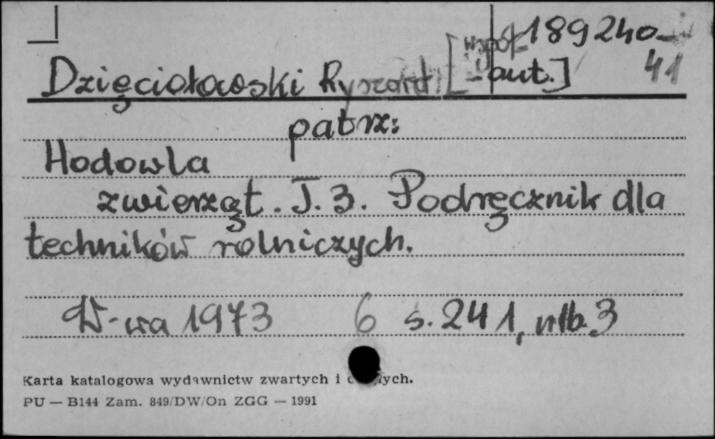 189240
Dzięciołowski Ryszard [współ-aut.] 41
patrz:
Hodowla
zwierząt. T. 3. Podręcznik dla
techników rolniczych.
W-wa 1973 6 s. 241, nlb. 3
Karta katalogowa wydawnictw zwartych i ciągłych.
PU — B144 Zam. 849/DW/On ZGG — 1991